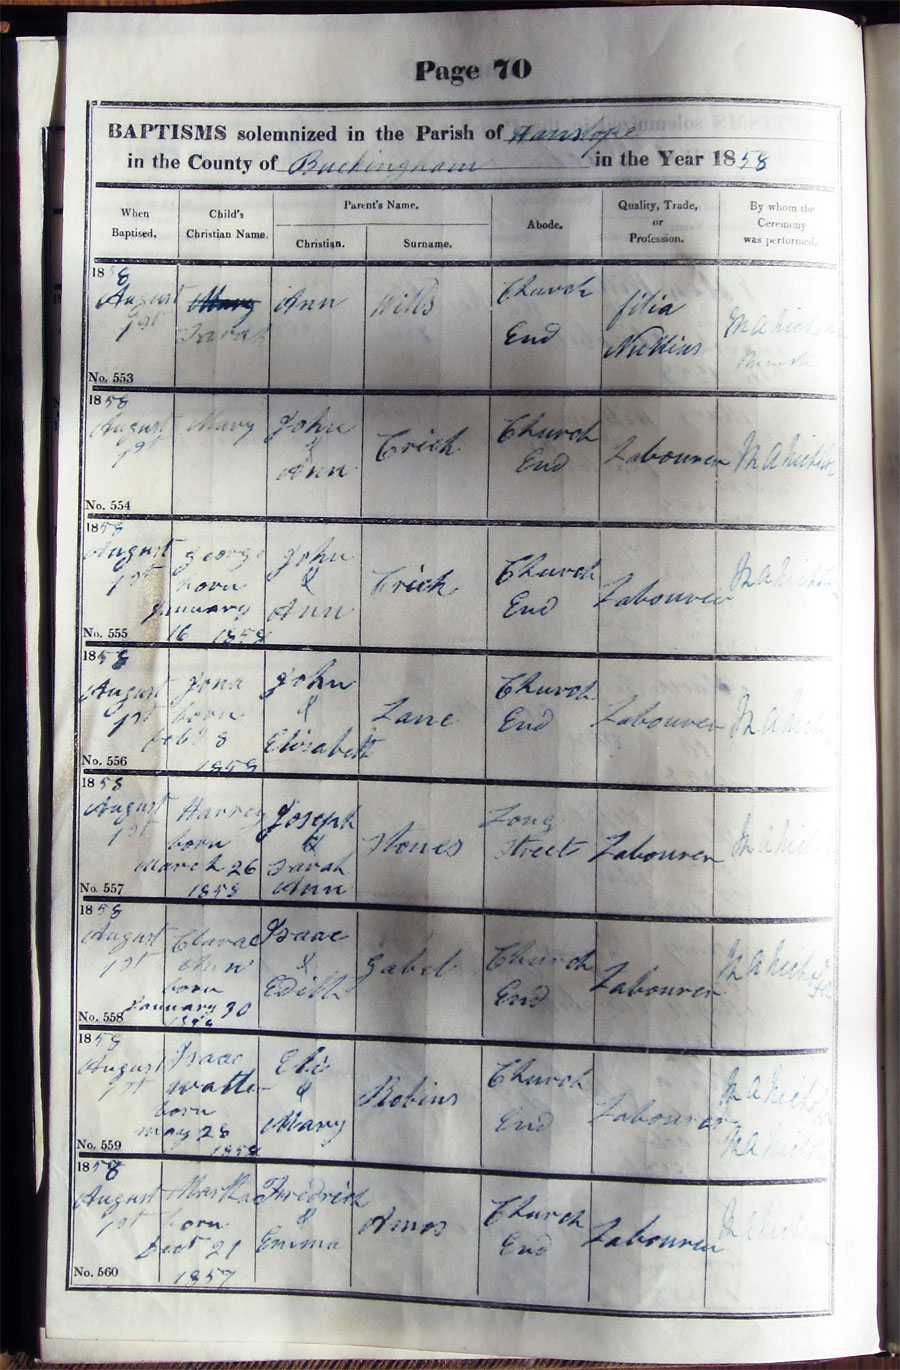 Page 70
BAPTISMS solemnized in the Parish of Hanslope
in the County of Buckingham in the Year 1858
When Baptised.
Child's Christian Name.
Parent's Name.
Christian.
Surname.
Abode.
Quality, Trade, or Profession.
By whom the Ceremony was performed.
1858
August
1st
No. 553
Mary
Sarah
Ann
Wills
Church
End
filia
Nullius
M A
1858
August
1st
No. 554
Mary
John
&
Ann
Crick
Church
End
Labourer
M A
1858
August
1st
No. 555
George
born
January
16 1858
John
&
Ann
Crick
Church
End
Labourer
M A
1858
August
1st
No. 556
born
1858
John
&
Elizabeth
Lane
Church
End
Labourer
M A
1858
August
1st
No. 557
Harvey
born
March 26
1858
Joseph
&
Sarah
Ann
Stones
Long
Street
Labourer
M A
1858
August
1st
No. 558
Ann
born
January 30
1858
Isaac
&
Edith
Gabel
Church
End
Labourer
M A
1858
August
1st
No. 559
Isaac
Walter
born
May 28
1858
Eli
&
Mary
Robins
Church
End
Labourer
M A
M A
1858
August
1st
No. 560
Martha
born
21
1857
Fredrick
&
Emma
Amos
Church
End
Labourer
M A